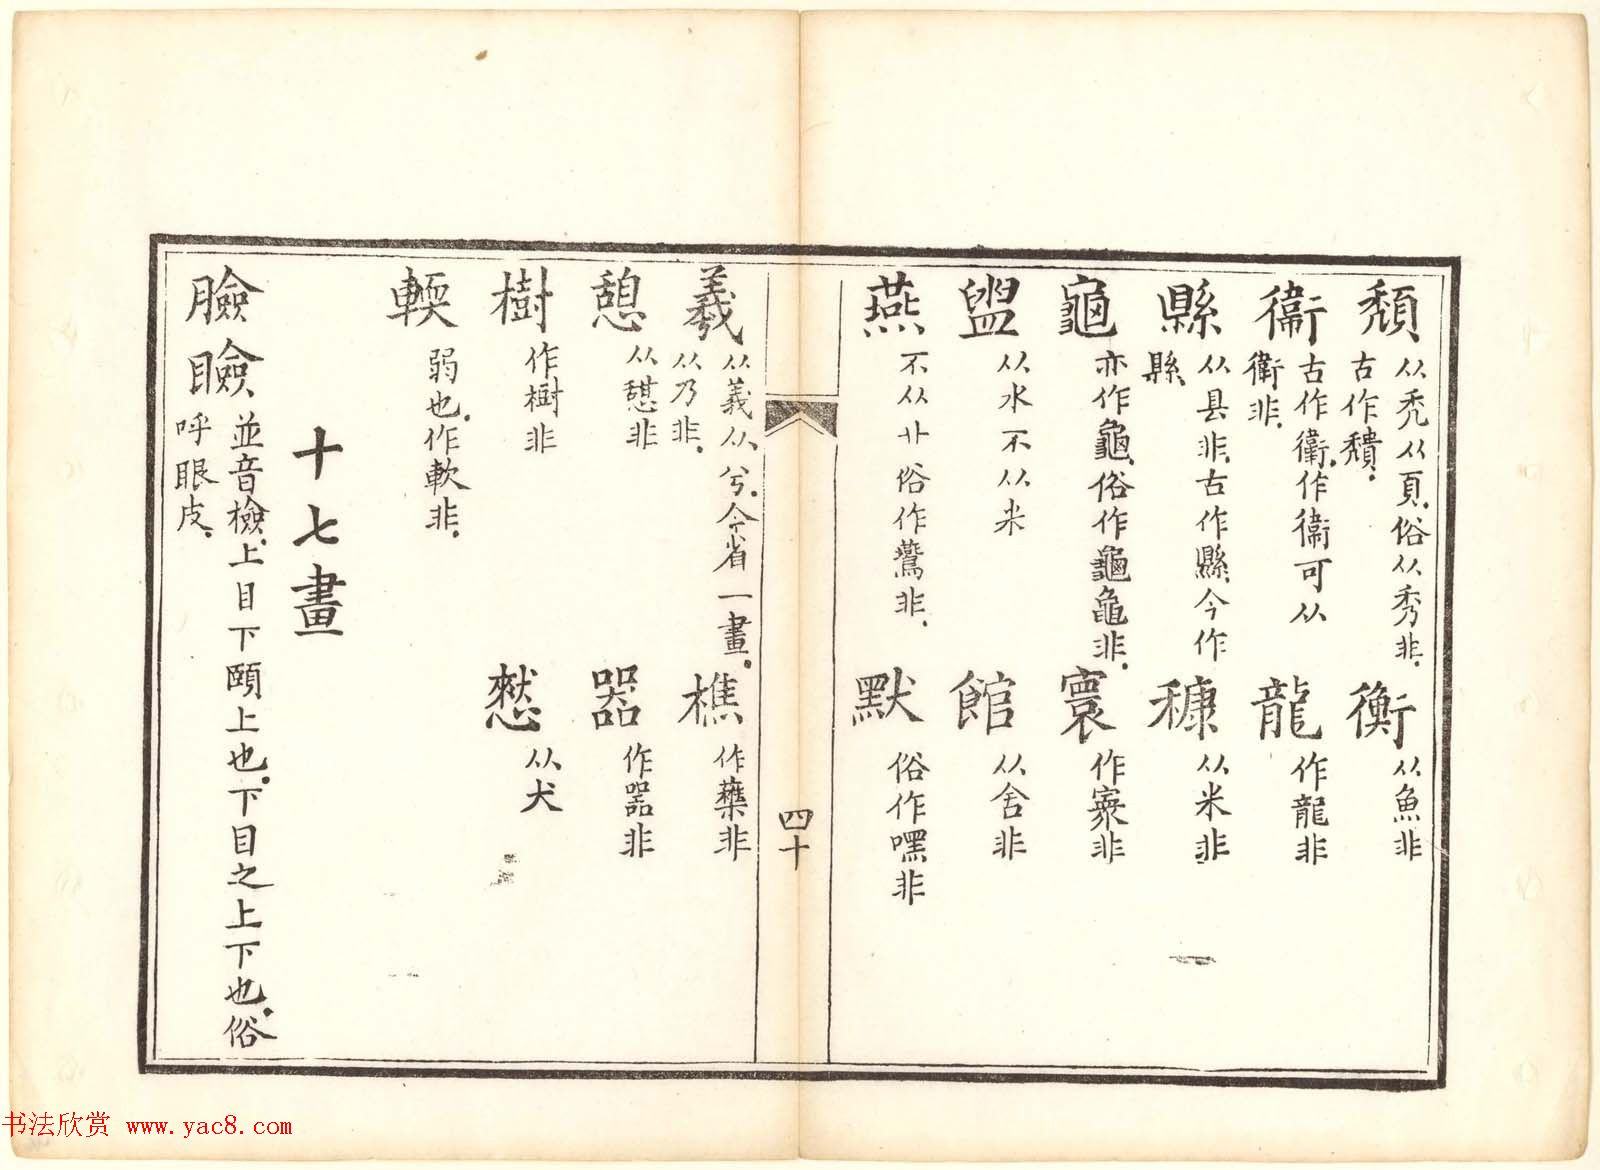 頹 从禿从頁俗从秀非
古作穨
衡 从魚非
衞 古作衞作衛可从
衛非
龍 作龍非
縣 从县非古作縣今作
縣
穅 从米非
龜 亦作龜俗作龜龜非
寰 作寰非
盥 从水不从米
館 从舍非
燕 不从廿俗作鷰非
默 俗作嘿非
四十
羲 从義从兮今省一畫
从乃非
樵 作蘸非
憩 从憇非
器 作噐非
樹 作樹非
憖 从犬
輭 弱也作軟非
十七畫
臉瞼 並音檢上目下頤上也下目之上下也俗
呼眼皮
书法欣赏 www.yac8.com